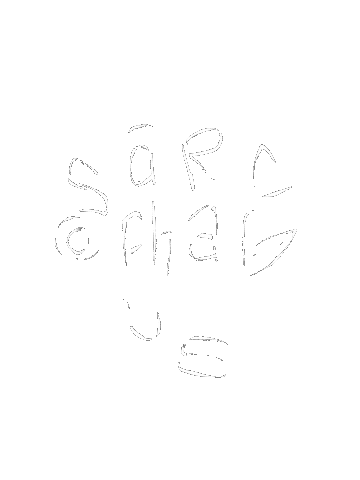 SāRC
ophaG
us